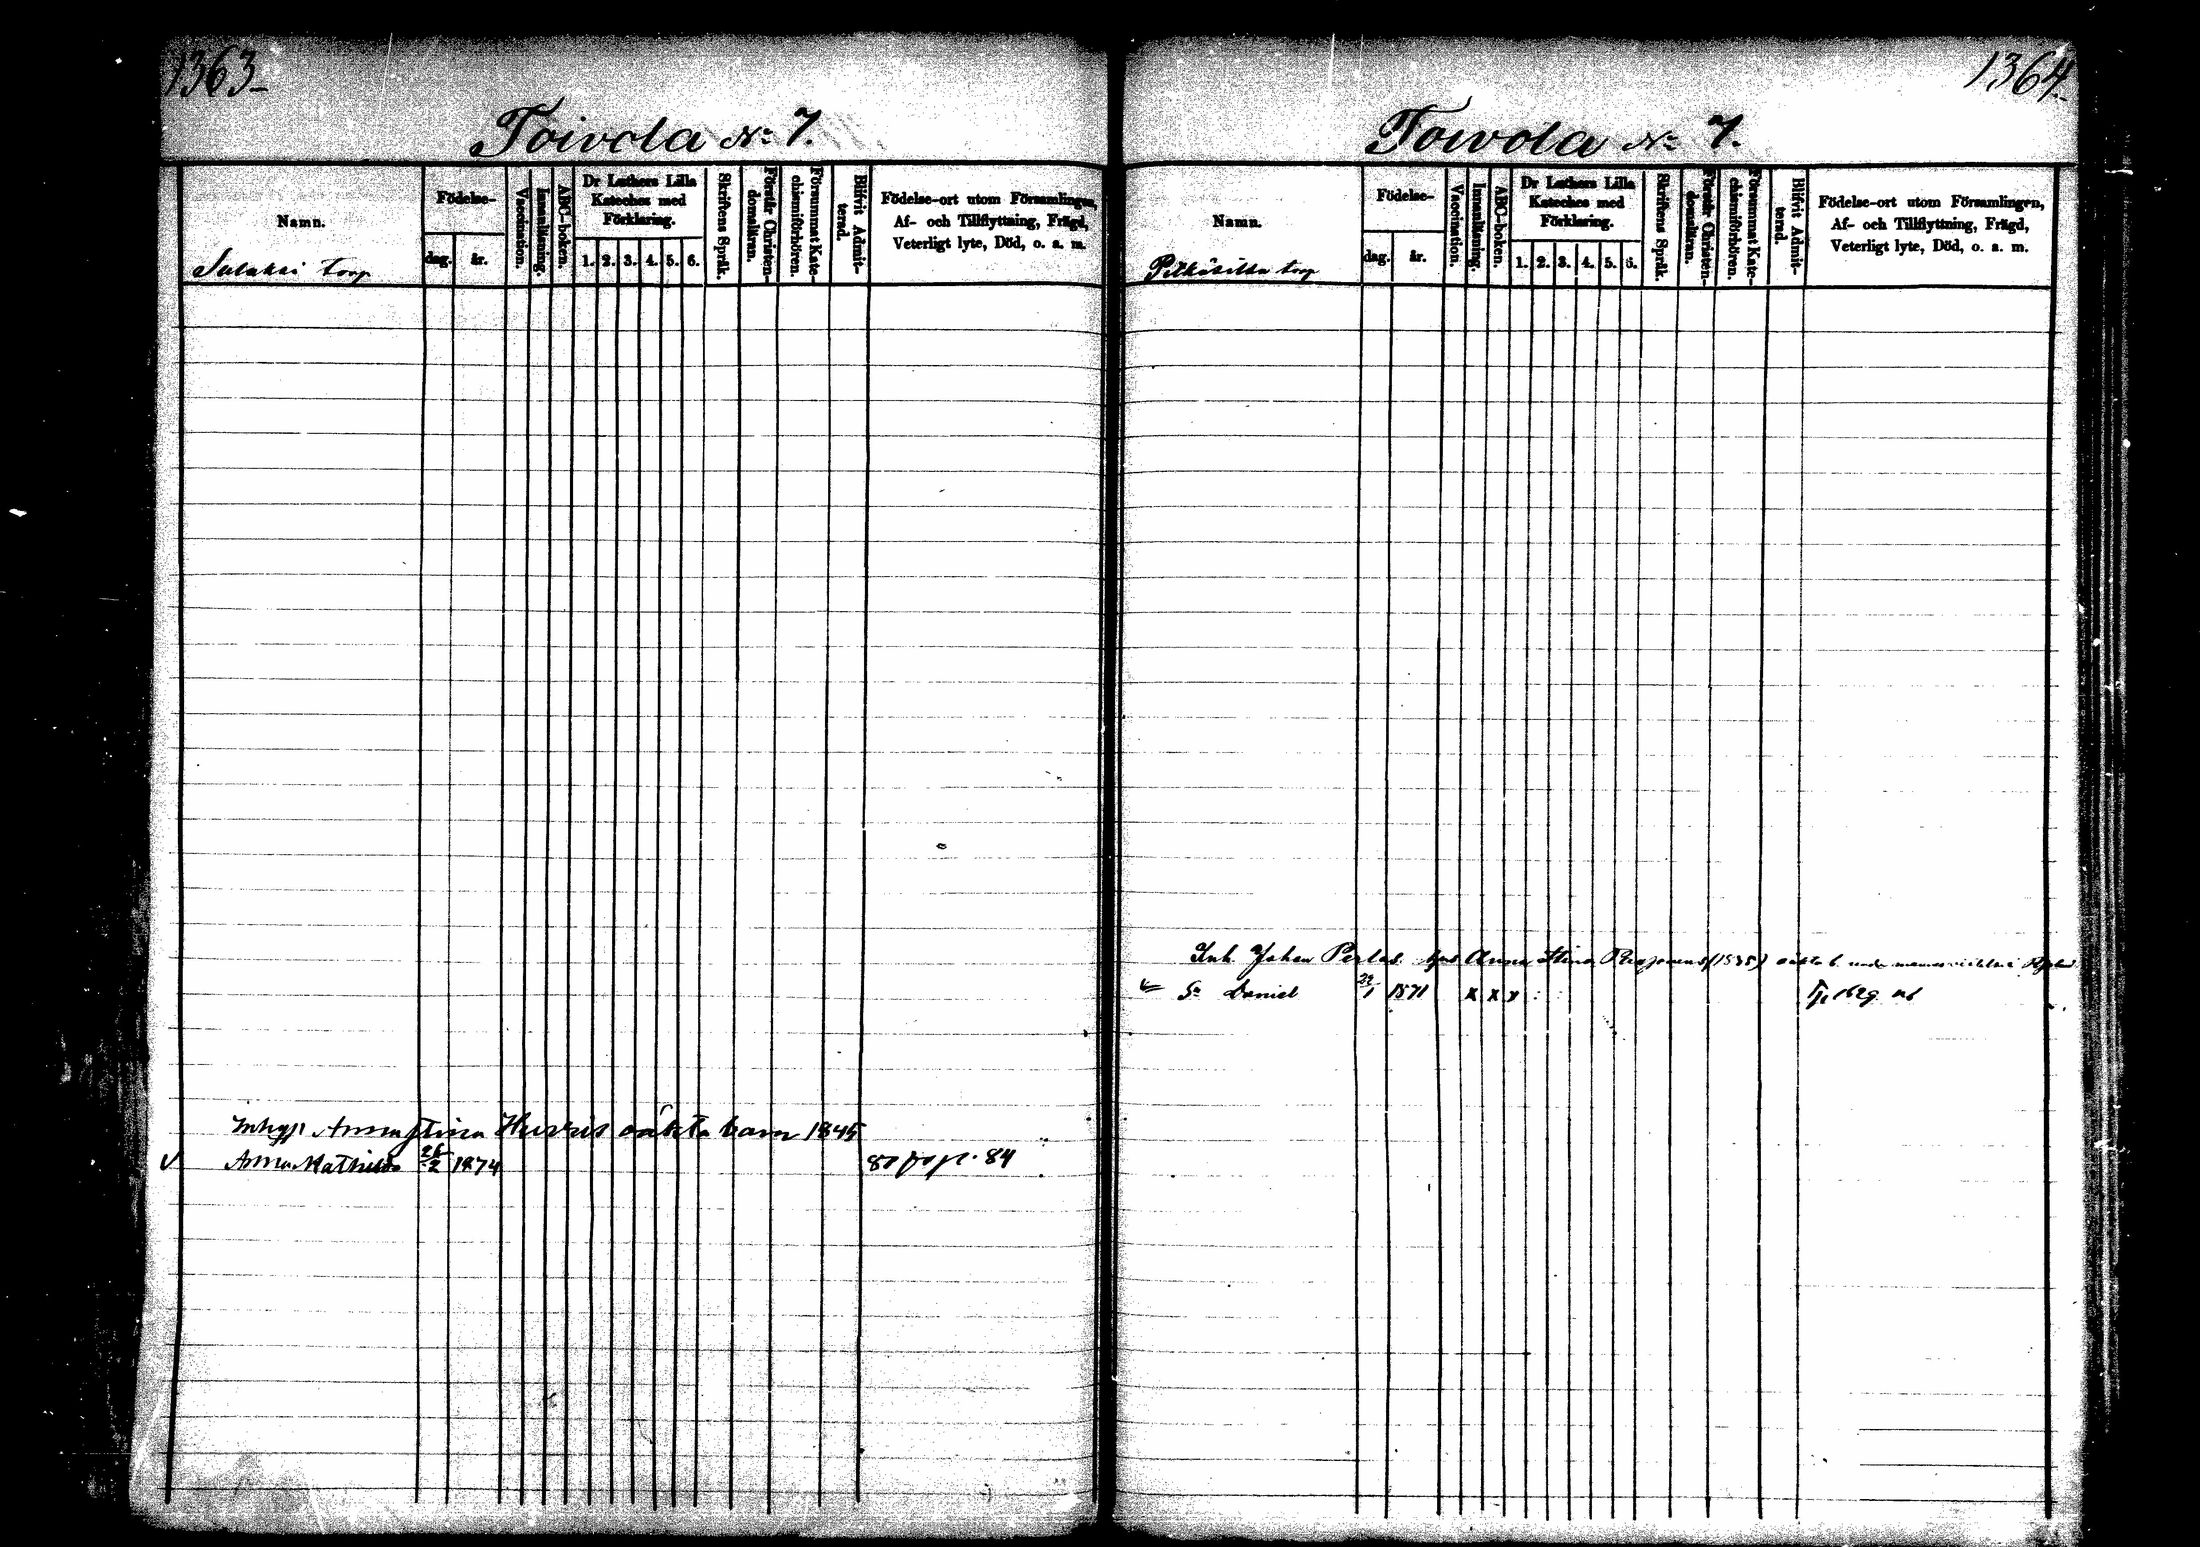 1363
Toivola No 7.
Namn.
Födelse-
dag. år.
Vaccination.
Innanläsning.
ABC-boken.
Dr Luthers Lilla
Kateches med
Förklaring.
1. 2. 3. 4. 5. 6.
Skriftens Språk.
Förstår Christen-
domsläran.
Försummat Kate-
chismiförhören.
Blifvit Admit-
terad.
Födelse-ort utom Församlingen,
Af- och Tillflyttning, Frägd,
Veterligt lyte, Död, o. a. m.
torp
Anna Stina oäkta barn 1845
Anna Mathilda 26/2 1874 84
1364
Toivola No 7.
Namn.
Födelse-
dag. år.
Vaccination.
Innanläsning.
ABC-boken.
Dr Luthers Lilla
Kateches med
Förklaring.
1. 2. 3. 4. 5. 6.
Skriftens Språk.
Förstår Christen-
domsläran.
Försummat Kate-
chismiförhören.
Blifvit Admit-
terad.
Födelse-ort utom Församlingen,
Af- och Tillflyttning, Frägd,
Veterligt lyte, Död, o. a. m.
torp
Inh. Johan Anna Stina (1835) oäkta b.
Sn Daniel 29/1 1871 x x x 1629